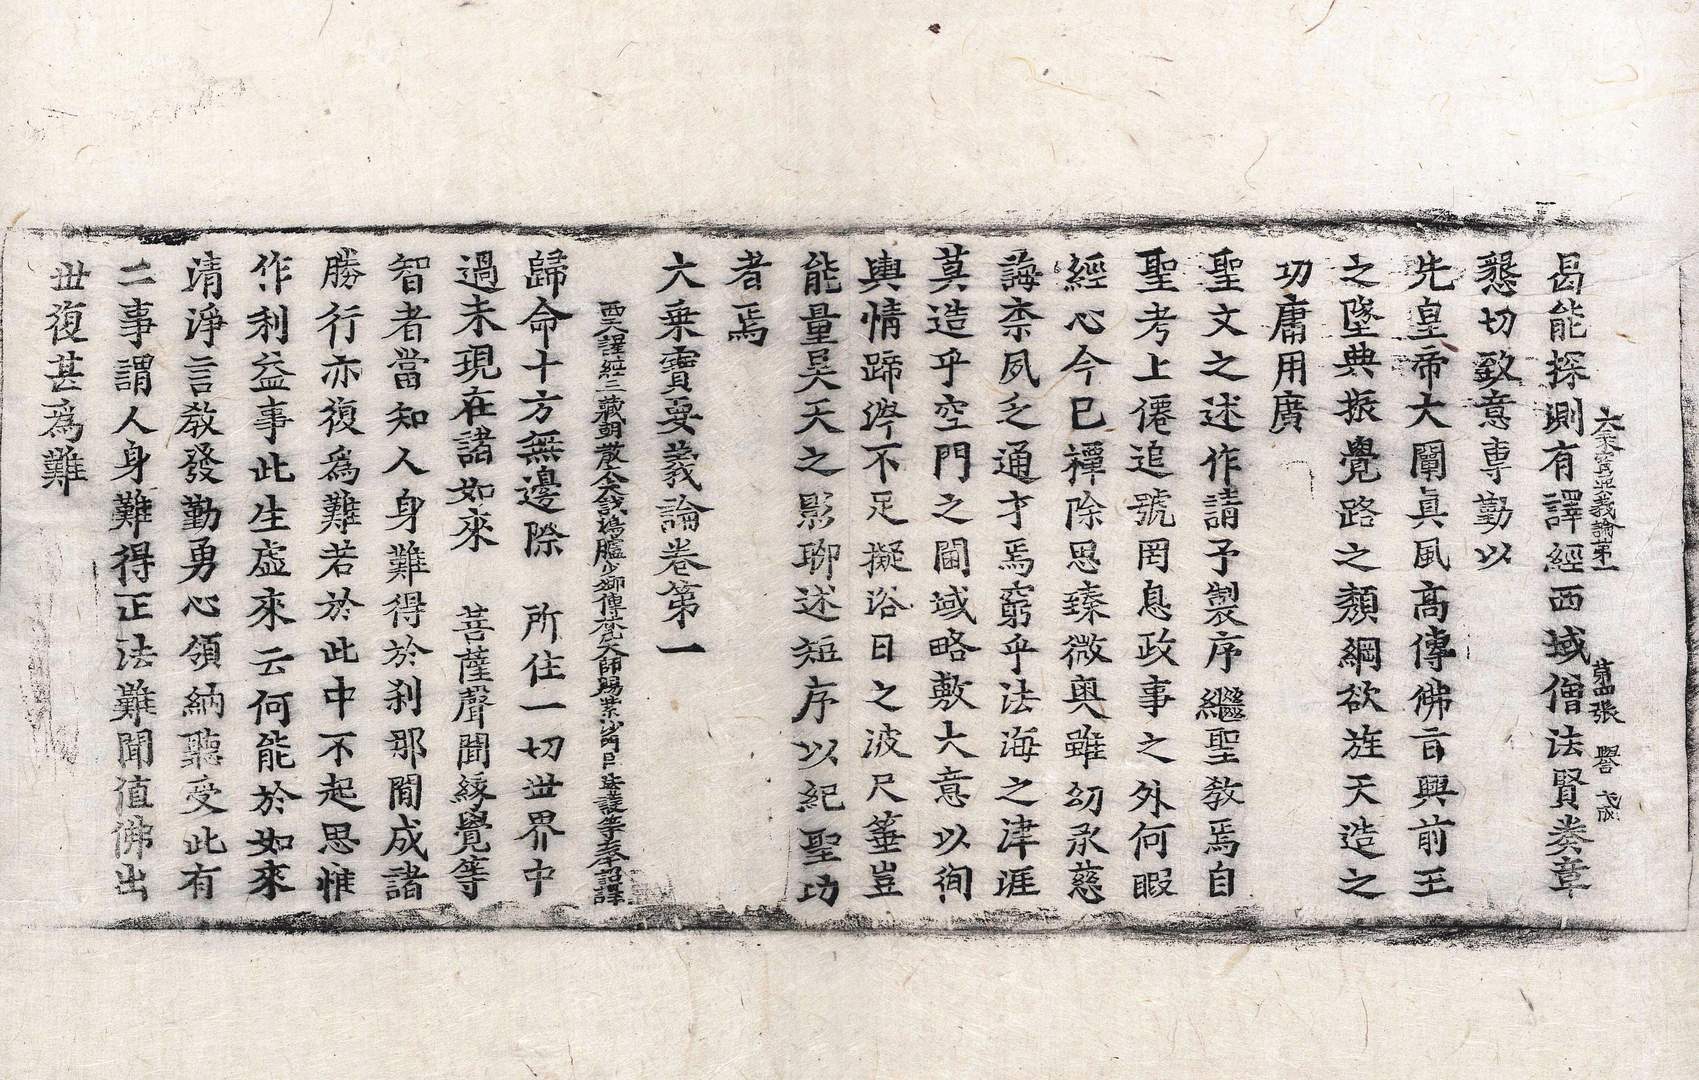 大乘寶要義論第一 第四張 譽 戊戌
曷能探測有譯經西域僧法賢奏章
懇切致意專勤以
先皇帝大闡眞風高傳佛旨興前王
之墜典振覺路之頹綱欲旌天造之
功庸用廣
聖文之述作請予製序繼聖教焉自
聖考上僊追號罔息政事之外何暇
經心今已禫除思臻微奧雖幼承慈
誨柰夙乏通才焉窮乎法海之津涯
莫造乎空門之閫域略敷大意以徇
輿情蹄涔不足擬浴日之波尺箠豈
能量昊天之影聊述短序以紀聖功
者焉
大乗寶要義論卷第一
西天譯經三藏朝散大夫試鴻臚少卿傳梵大師賜紫沙門臣法護等奉詔譯
歸命十方無邊際 所住一切世界中
過未現在諸如來 菩薩聲聞緣覺等
智者當知人身難得於刹那間成諸
勝行亦復爲難若於此中不起思惟
作利益事此生虛來云何能於如來
清淨言教發勤勇心領納聽受此有
二事謂人身難得正法難聞值佛出
世復甚爲難